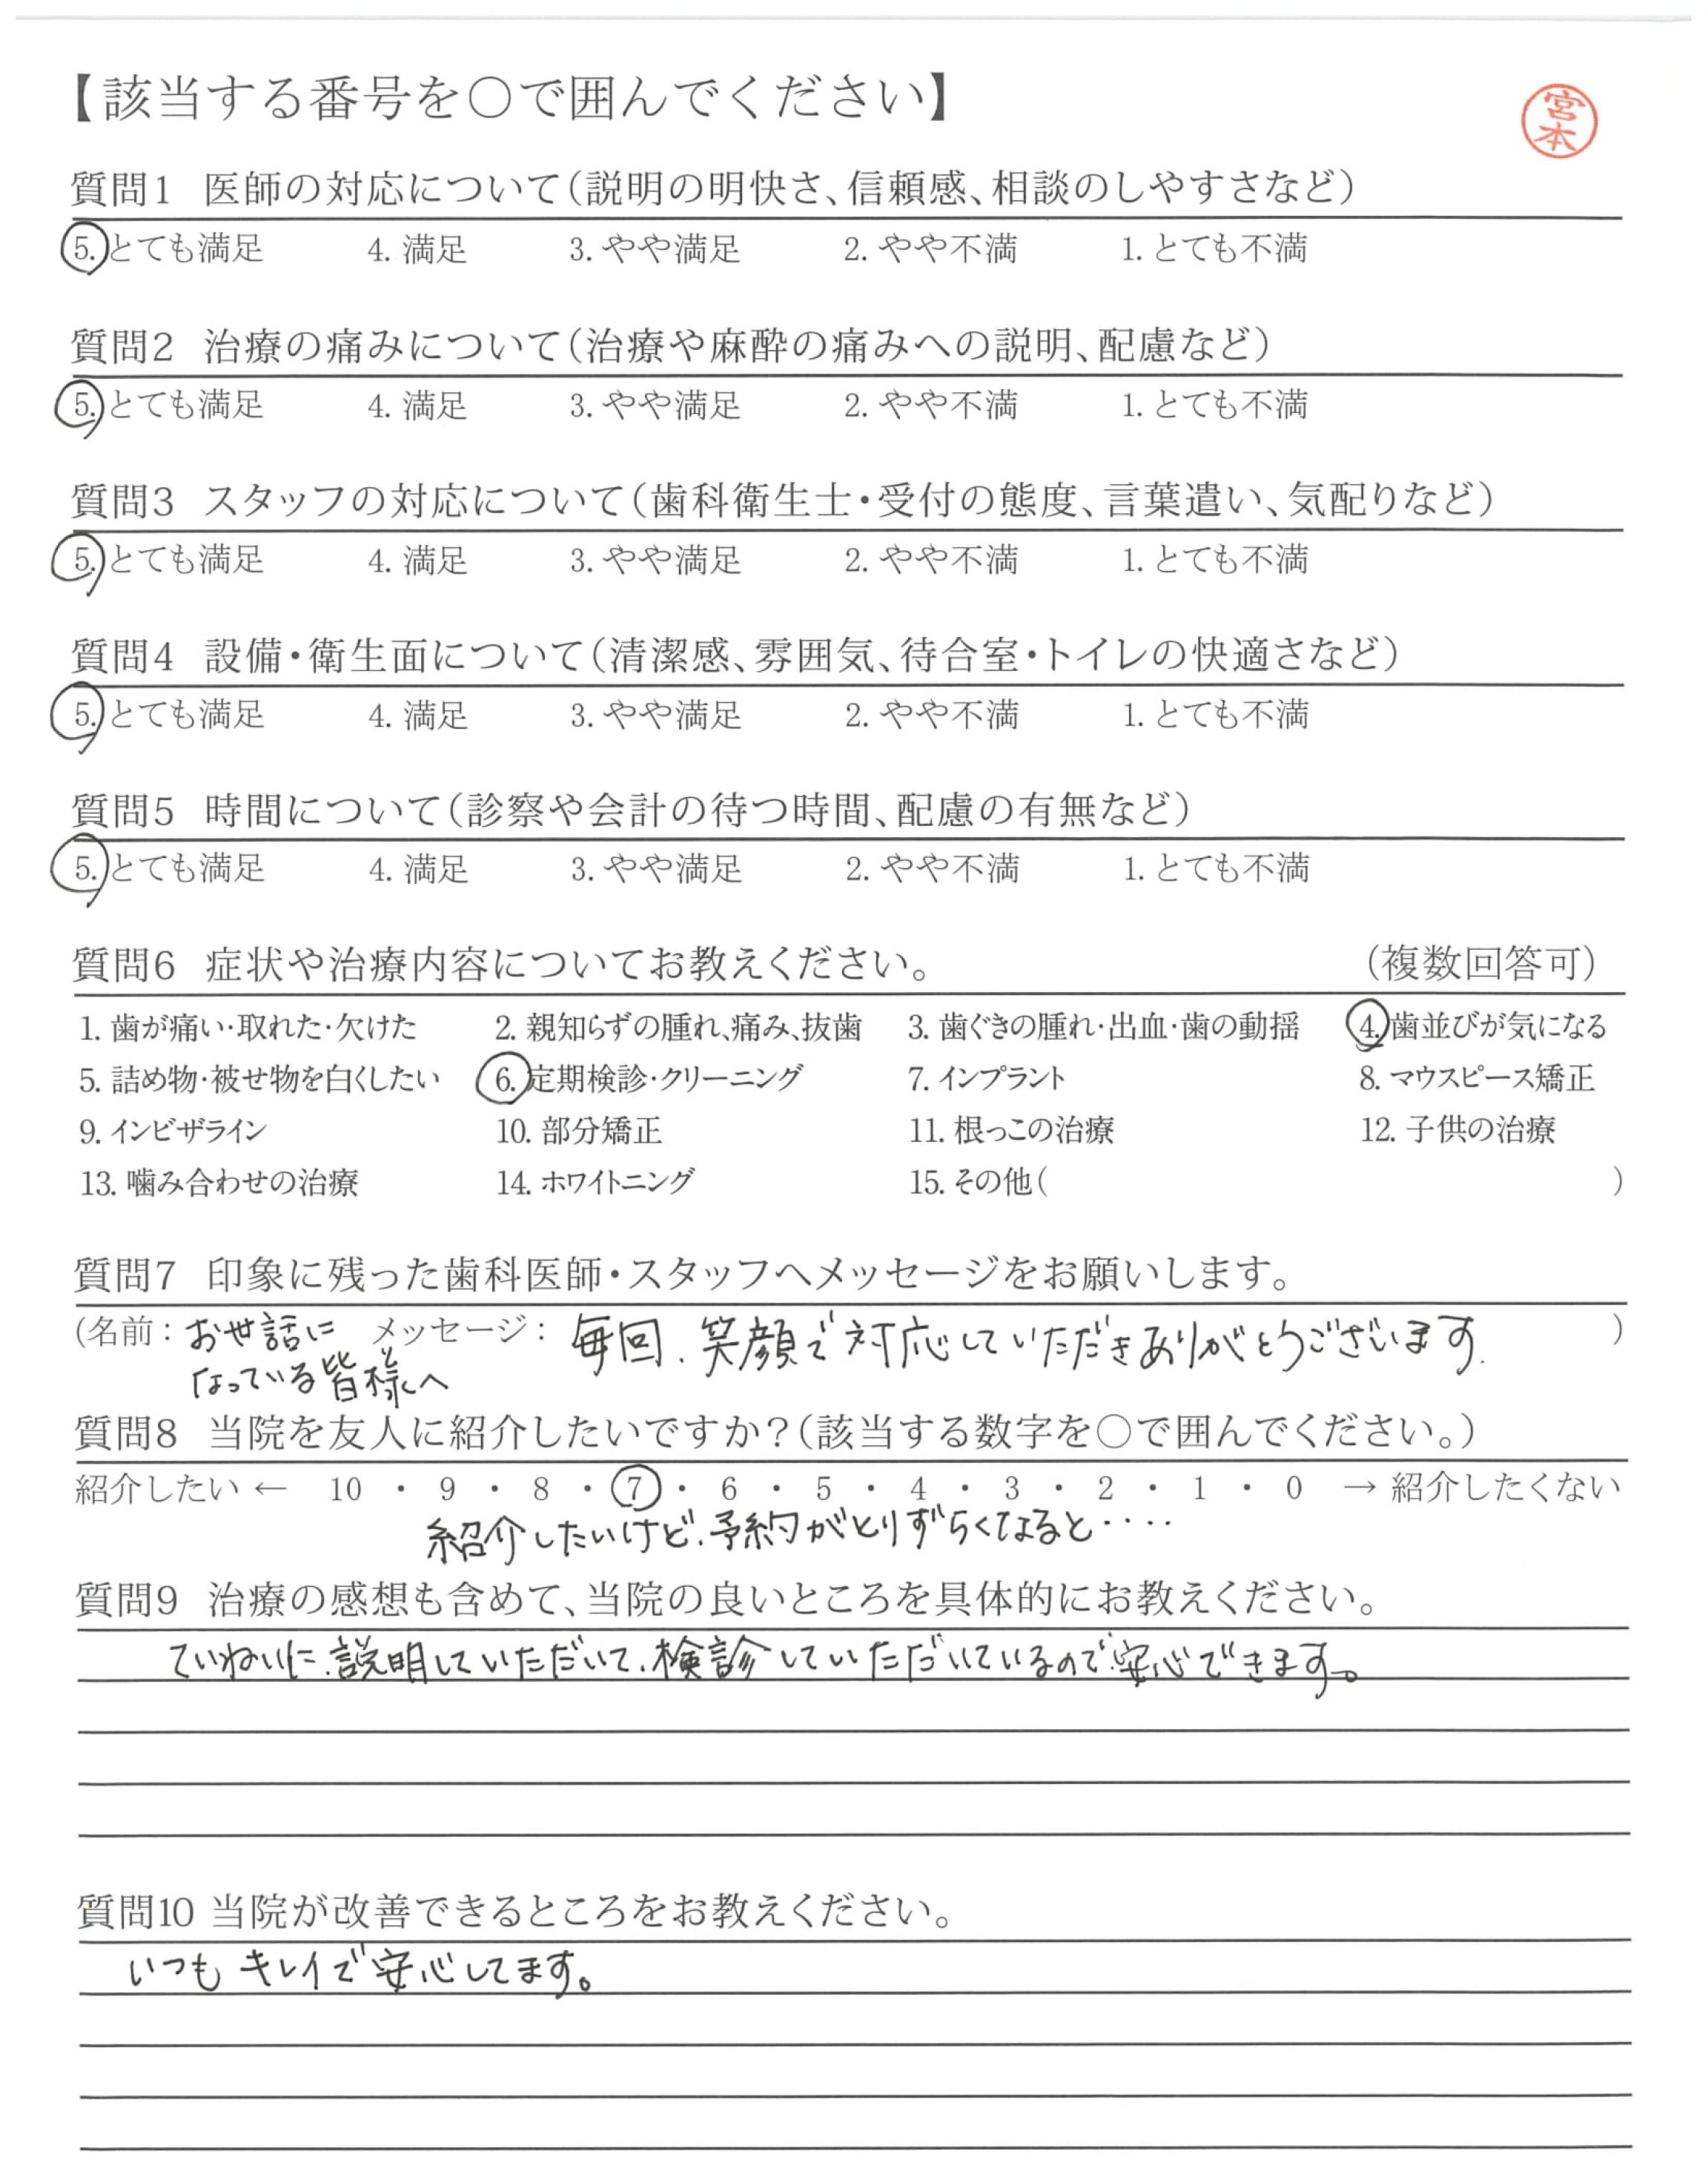 【該当する番号を〇で囲んでください】
宮本
質問1 医師の対応について(説明の明快さ、信頼感、相談のしやすさなど)
5. とても満足 4. 満足 3. やや満足 2. やや不満 1. とても不満
質問2 治療の痛みについて(治療や麻酔の痛みへの説明、配慮など)
5. とても満足 4. 満足 3. やや満足 2. やや不満 1. とても不満
質問3 スタッフの対応について(歯科衛生士・受付の態度、言葉遣い、気配りなど)
5. とても満足 4. 満足 3. やや満足 2. やや不満 1. とても不満
質問4 設備・衛生面について(清潔感、雰囲気、待合室・トイレの快適さなど)
5. とても満足 4. 満足 3. やや満足 2. やや不満 1. とても不満
質問5 時間について(診察や会計の待つ時間、配慮の有無など)
5. とても満足 4. 満足 3. やや満足 2. やや不満 1. とても不満
質問6 症状や治療内容についてお教えください。 (複数回答可)
1. 歯が痛い・取れた・欠けた 2. 親知らずの腫れ、痛み、抜歯 3. 歯ぐきの腫れ・出血・歯の動揺 4. 歯並びが気になる
5. 詰め物・被せ物を白くしたい 6. 定期検診・クリーニング 7. インプラント 8. マウスピース矯正
9. インビザライン 10. 部分矯正 11. 根っこの治療 12. 子供の治療
13. 噛み合わせの治療 14. ホワイトニング 15. その他( )
質問7 印象に残った歯科医師・スタッフへメッセージをお願いします。
(名前：お世話に メッセージ：毎回、笑顔で対応していただきありがとうございます。 )
なっている皆様へ
質問8 当院を友人に紹介したいですか？(該当する数字を〇で囲んでください。)
紹介したい ← 10 ・ 9 ・ 8 ・ 7 ・ 6 ・ 5 ・ 4 ・ 3 ・ 2 ・ 1 ・ 0 → 紹介したくない
紹介したいけど、予約がとりずらくなると・・・・
質問9 治療の感想も含めて、当院の良いところを具体的にお教えください。
ていねいに、説明していただいて、検診していただいているので安心できます。
質問10 当院が改善できるところをお教えください。
いつもキレイで安心してます。